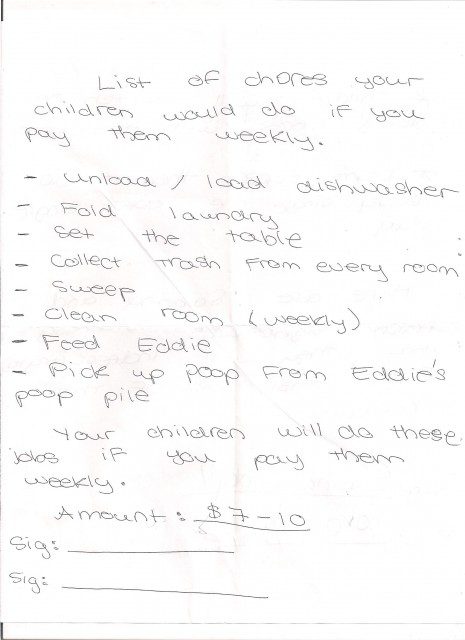 List of chores your
children would do if you
pay them weekly.
- unload / load dishwasher
- Fold laundry
- Set the table
- Collect Trash From every room
- Sweep
- Clean room (weekly)
- Feed Eddie
- Pick up poop From Eddie's
poop pile
Your children will do these
jobs if you pay them
weekly.
Amount: $7-10
Sig:
Sig: